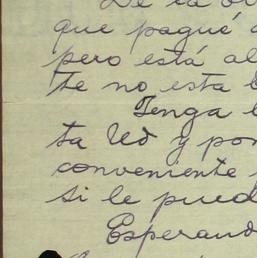 De la
que pagué
pero está al
te no esta
Tenga
ta Ud y por
conveniente
si le pued
Esperand